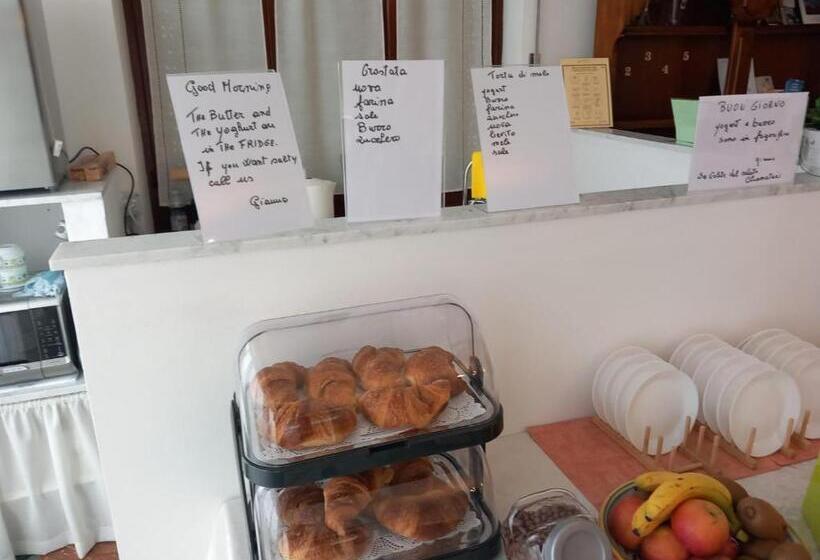 Good Morning
The Butter and
The yoghurt are
in The FRIDGE.
If you want salty
call us
Gianna
Crostata
uova
farina
sale
Burro
zucchero
Torta di mele
yogurt
Burro
farina
zucchero
uova
lievito
mele
sale
BUON GIORNO
yogurt e burro
sono in frigorifero
Se volete del salato
chiamateci
2 3 4 5